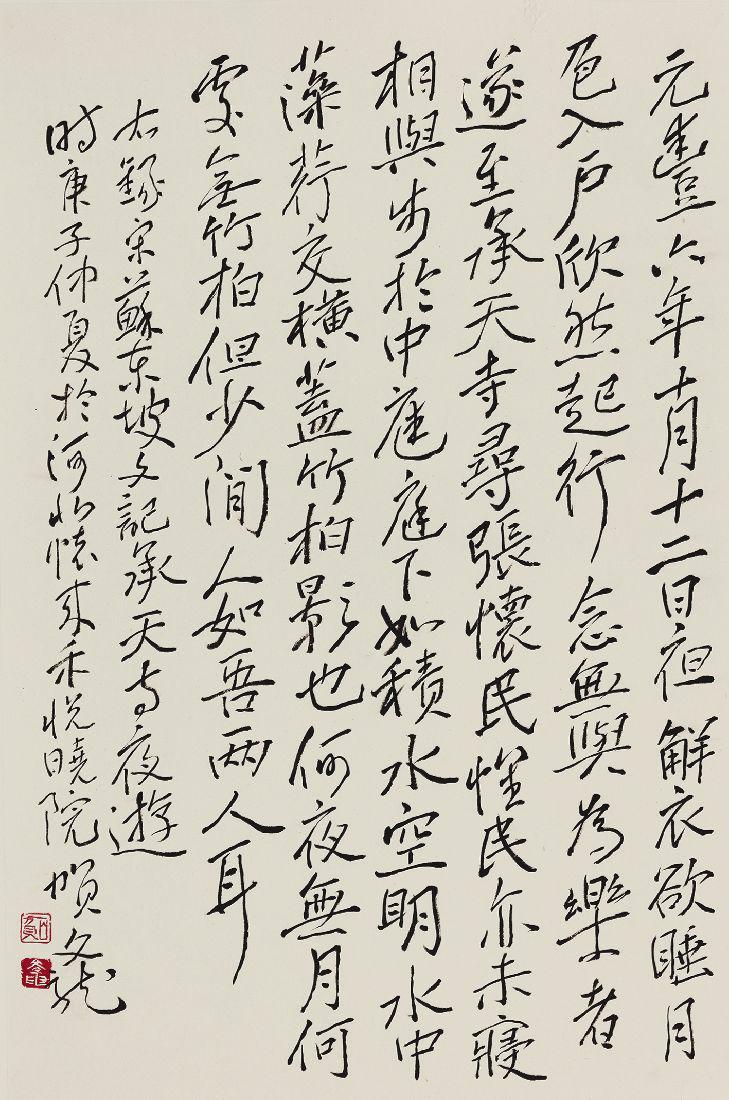 元豐六年十月十二日夜解衣欲睡月
色入戶欣然起行念無與為樂者
遂至承天寺尋張懷民懷民亦未寢
相與步於中庭庭下如積水空明水中
藻荇交橫蓋竹柏影也何夜無月何
處無竹柏但少閒人如吾兩人耳
右錄宋蘇東坡文記承天寺夜遊
時庚子仲夏於河北懷來禾悅曉院 賀文龍